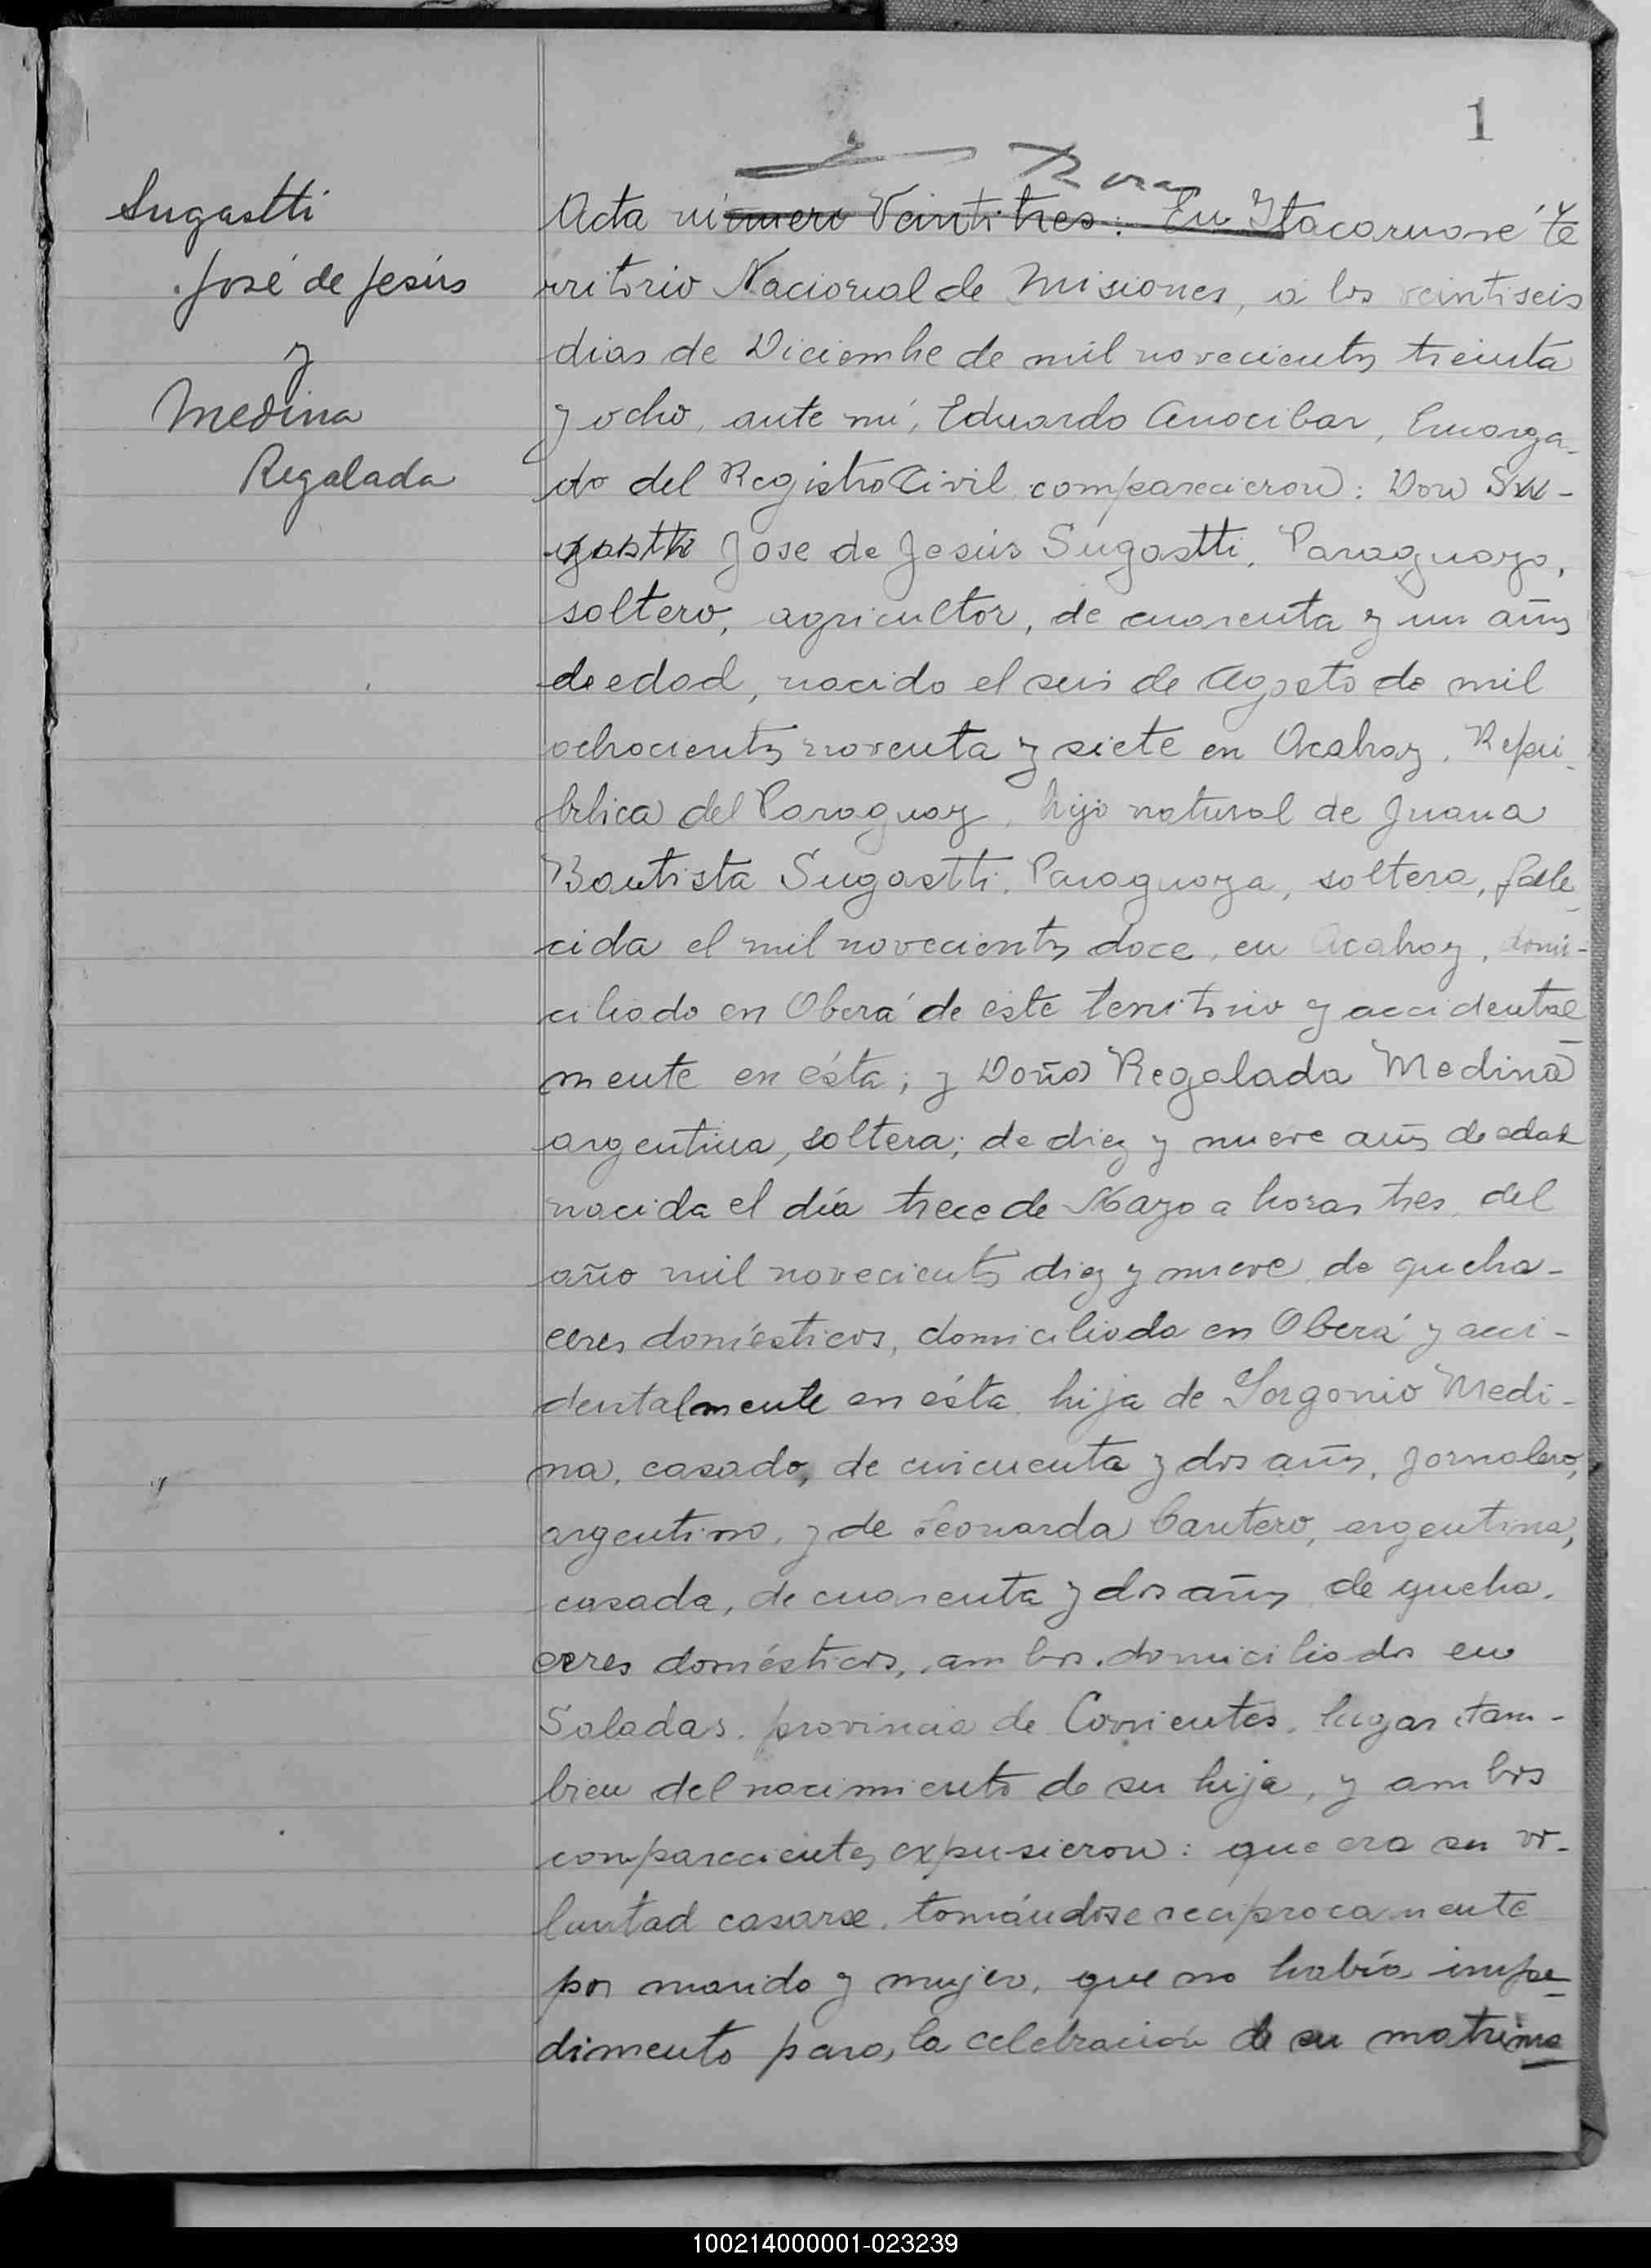 1
Sugastti
José de Jesús
y
Medina
Regalada
Acta número Veintitres: En Itacaruaré te
rritorio Nacional de Misiones, a los veintiseis
dias de Diciembre de mil novecientos treinta
y ocho, ante mí, Eduardo Anocibar, Encarga-
do del Registro Civil comparecieron: Don Su-
gastti Jose de Jesús Sugastti, Paraguayo,
soltero, agricultor, de cuarenta y un años
de edad, nacido el seis de Agosto de mil
ochocientos noventa y siete en Acahay, Repú-
blica del Paraguay, hijo natural de Juana
Bautista Sugastti, Paraguaya, soltera, falle-
cida el mil novecientos doce, en Acahay, domi-
ciliado en Oberá de este territorio y accidental-
mente en ésta; y Doña Regalada Medina
argentina, soltera; de diez y nueve años de edad
nacida el día trece de Mayo a horas tres, del
año mil novecientos diez y nueve de queha-
ceres domésticos, domiciliada en Oberá y acci-
dentalmente en ésta hija de Gorgonio Medi-
na, casado, de cincuenta y dos años, jornalero,
argentino, y de Leonarda Cantero, argentina,
casada, de cuarenta y dos años de queha.
ceres domésticos, ambos domiciliados en
Saladas, provincia de Corrientes, lugar tam-
bien del nacimiento de su hija, y ambos
comparecientes expusieron: que era su vo-
luntad casarse, tomándose reciprocamente
por marido y mujer, que no había impe-
dimento para la celebración de su matrimo
100214000001-023239